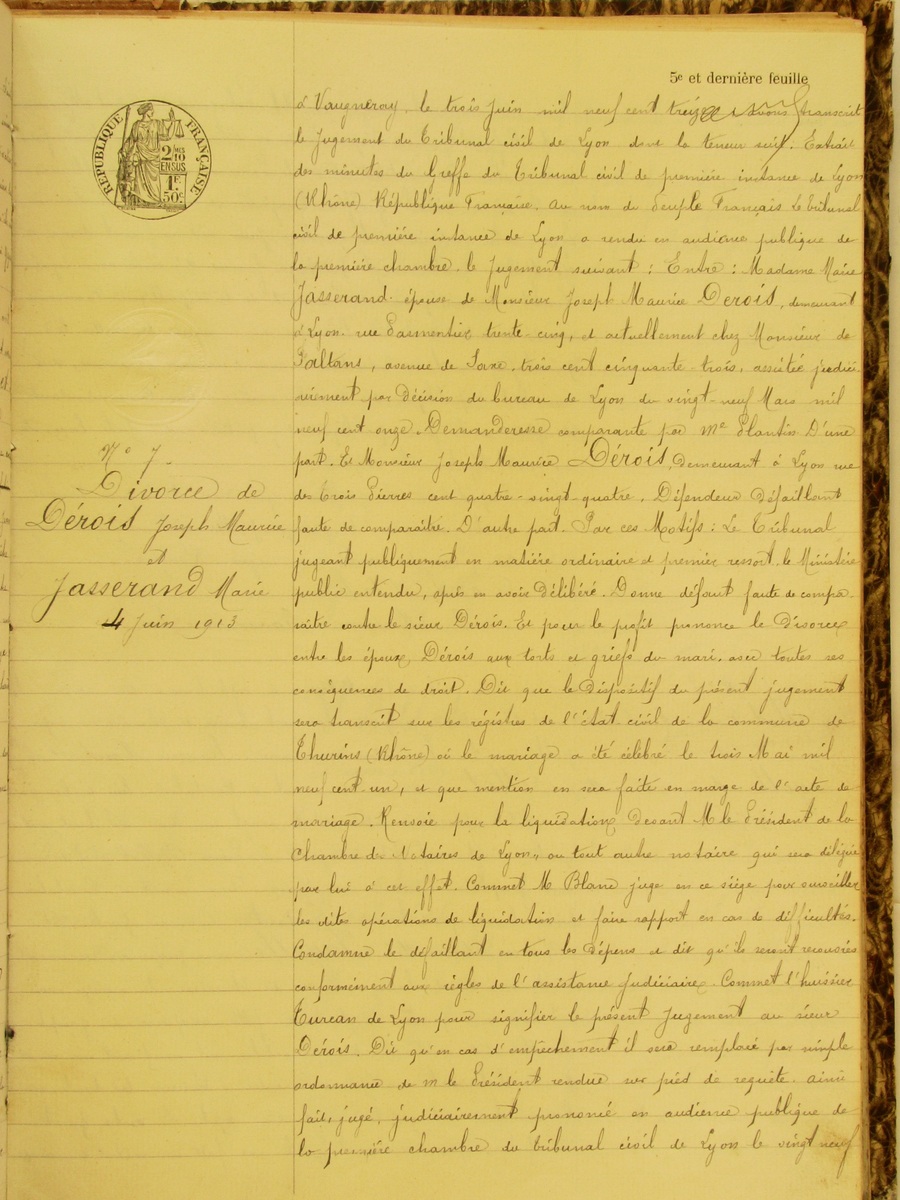 5e et dernière feuille
RÉPUBLIQUE FRANÇAISE
2 MES
10
EN SUS
1 F
50 c.
N° 7
Divorce de
Dérois Joseph Maurice
et
Jasserand Marie
4 Juin 1913
à Vaugneray, le trois Juin mil neuf cent treize avons transcrit
le Jugement du Tribunal civil de Lyon dont la teneur suit. Extrait
des minutes du Greffe du Tribunal civil de première instance de Lyon
(Rhône) République Française. Au nom du Peuple Français Le Tribunal
civil de première instance de Lyon a rendu en audience publique de
la première chambre le Jugement suivant : Entre : Madame Marie
Jasserand épouse de Monsieur Joseph Maurice Derois, demeurant
à Lyon rue Parmentier trente-cinq, et actuellement chez Monsieur de
avenue de Saxe trois cent cinquante-trois, assistée judici
airement par décision du bureau de Lyon du vingt-neuf Mars mil
neuf cent onze. Demanderesse comparante par Me Plantin D'une
part. Et Monsieur Joseph Maurice Dérois, demeurant à Lyon rue
des Trois Pierres cent quatre-vingt-quatre. Défendeur Défaillant
faute de comparaître. D'autre part. Par ces Motifs : Le Tribunal
jugeant publiquement en matière ordinaire et premier ressort, le Ministère
public entendu, après en avoir Délibéré. Donne défaut faute de compa-
raître contre le sieur Dérois. Et pour le profit prononce le divorce
entre les époux Dérois aux torts et griefs du mari, avec toutes ses
conséquences de droit. Dit que le Dispositif du présent jugement
sera transcrit sur les régistres de l'état civil de la commune de
Thurins (Rhône) où le mariage a été célébré le trois Mai mil
neuf cent un, et que mention en sera faite en marge de l'acte de
mariage. Renvoie pour la liquidation Devant M le Président de la
Chambre des Notaires de Lyon, ou tout autre notaire qui sera délégué
par lui à cet effet. Commet M Blanc juge en ce siège pour surveiller
les dites opérations de liquidation et faire rapport en cas de difficultés.
Condamne le défaillant en tous les Dépens et dit qu'ils seront recouvrés
conformément aux règles de l'assistance Judiciaire. Commet l'huissier
Turcan de Lyon pour signifier le présent Jugement au sieur
Dérois. Dit qu'en cas d'empêchement il sera remplacé par simple
ordonnance de M le Président rendue sur pied de requête. Ainsi
fait, jugé, judiciairement prononcé en audience publique de
la première chambre du tribunal civil de Lyon le vingt neuf